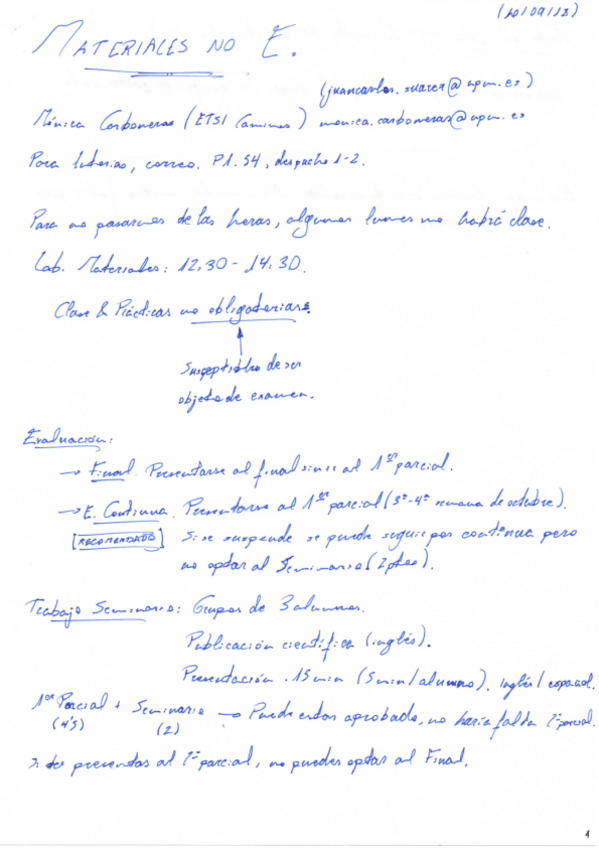 (10/09/12)
MATERIALES NO E.
(juancarlos.suarez@upm.es)
Mónica Carboneras (ETSI Caminos) monica.carboneras@upm.es
Para tutorías, correo. P1.S4, despacho 1-2.
Para no pasarnos de las horas, algunos lunes no habrá clase.
Lab. Materiales: 12:30 - 14:30.
Clase & Prácticas no obligatorias.
Susceptible de ser
objeto de examen.
Evaluación:
→ Final. Presentarse al final sin ir al 1er parcial.
→ E. Continua. Presentarse al 1er parcial (3ª-4ª semana de octubre).
[RECOMENDADO] Si se suspende se puede seguir por continua pero
no optar al Seminario (2ptos).
Trabajo Seminario: Grupos de 3 alumnos.
Publicación científica (inglés).
Presentación. 15min (5min/alumno). inglés/español.
1er Parcial + Seminario → Puede estar aprobado, no haría falta 2º parcial.
(4'5) (2)
Si te presentas al 1er parcial, no puedes optar al Final.
1